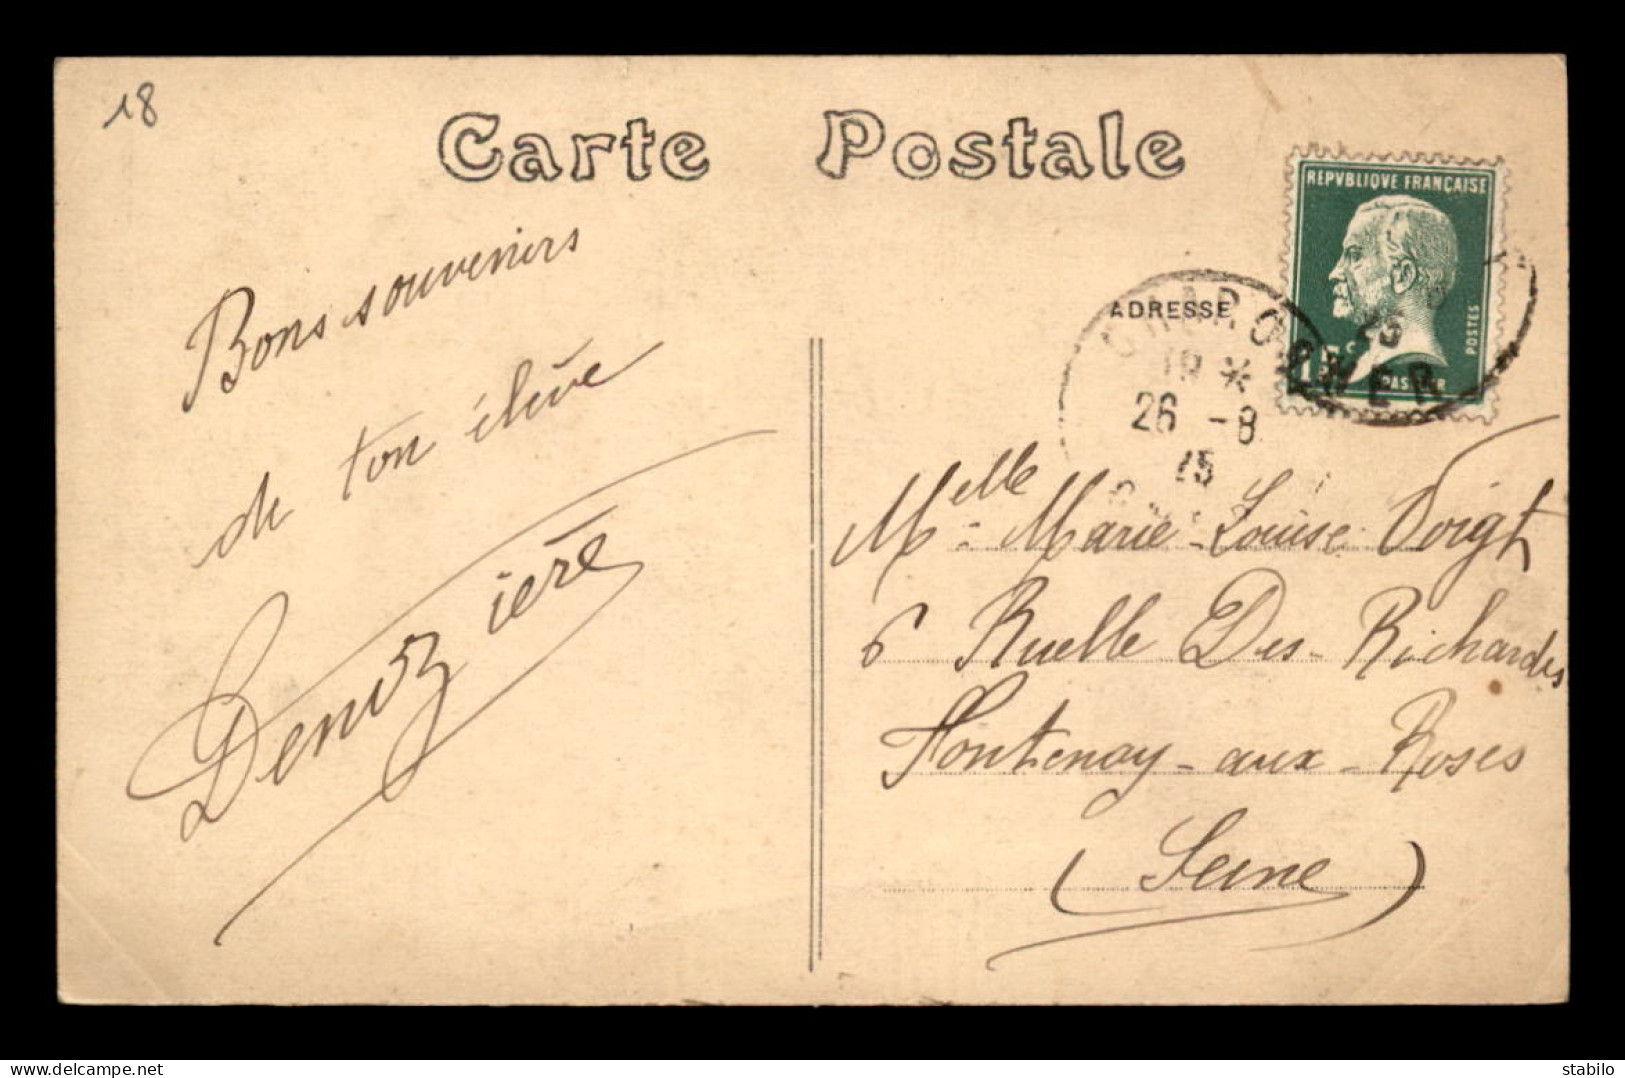 18
Carte Postale
REPVBLIQVE FRANÇAISE
POSTES
15c
ADRESSE
18 *
26 - 8
25
Bons souvenirs
de ton élève
Mlle Marie-Louise Voigt
6 Ruelle Des-Richardes
Fontenay-aux-Roses
(Seine)
delcampe.net
stabilo